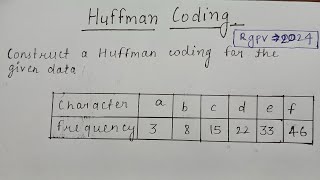 Huffman Coding
Rgpv → 2024
Construct a Huffman coding for the
given data:
Character a b c d e f
frequency 3 8 15 22 33 46